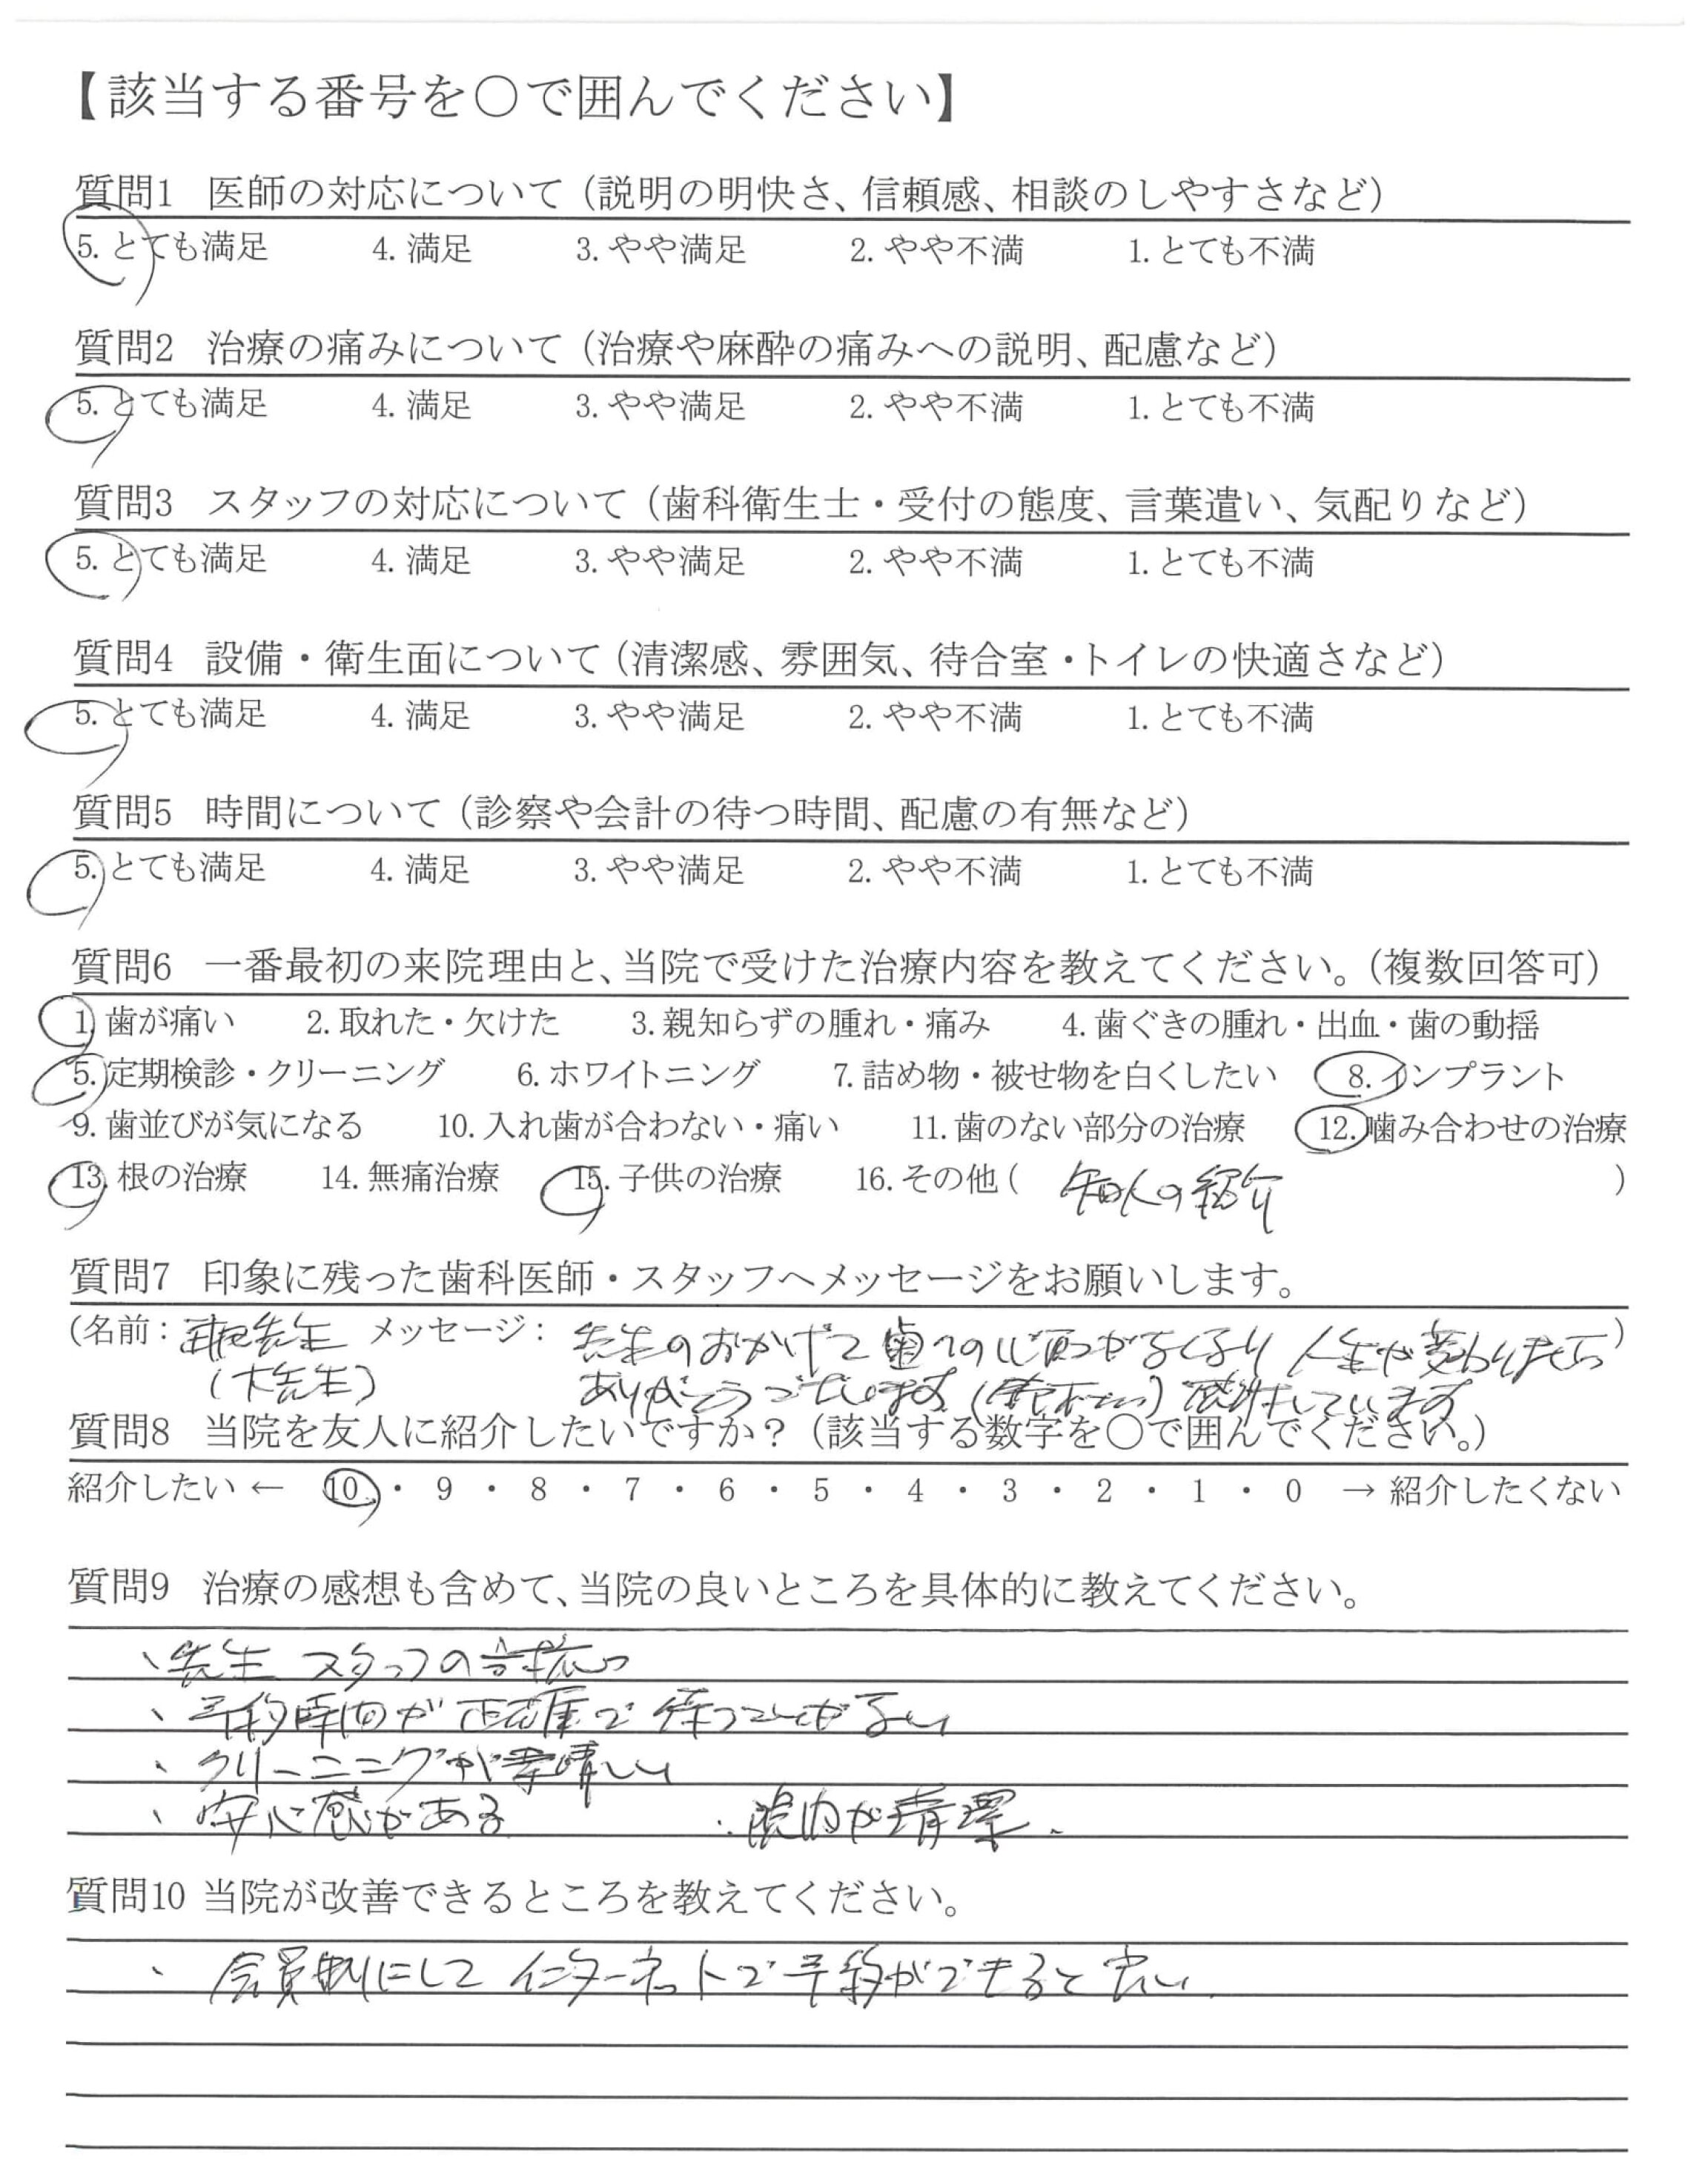 【該当する番号を〇で囲んでください】
質問1 医師の対応について（説明の明快さ、信頼感、相談のしやすさなど）
5. とても満足 4. 満足 3. やや満足 2. やや不満 1. とても不満
質問2 治療の痛みについて（治療や麻酔の痛みへの説明、配慮など）
5. とても満足 4. 満足 3. やや満足 2. やや不満 1. とても不満
質問3 スタッフの対応について（歯科衛生士・受付の態度、言葉遣い、気配りなど）
5. とても満足 4. 満足 3. やや満足 2. やや不満 1. とても不満
質問4 設備・衛生面について（清潔感、雰囲気、待合室・トイレの快適さなど）
5. とても満足 4. 満足 3. やや満足 2. やや不満 1. とても不満
質問5 時間について（診察や会計の待つ時間、配慮の有無など）
5. とても満足 4. 満足 3. やや満足 2. やや不満 1. とても不満
質問6 一番最初の来院理由と、当院で受けた治療内容を教えてください。（複数回答可）
1. 歯が痛い 2. 取れた・欠けた 3. 親知らずの腫れ・痛み 4. 歯ぐきの腫れ・出血・歯の動揺
5. 定期検診・クリーニング 6. ホワイトニング 7. 詰め物・被せ物を白くしたい 8. インプラント
9. 歯並びが気になる 10. 入れ歯が合わない・痛い 11. 歯のない部分の治療 12. 噛み合わせの治療
13. 根の治療 14. 無痛治療 15. 子供の治療 16. その他（ 知人の紹介 ）
質問7 印象に残った歯科医師・スタッフへメッセージをお願いします。
（名前： 先生 メッセージ： 先生のおかげで歯への心配がなくなり 人生が変わりました）
（大先生） ありがとうございます 感謝しています
質問8 当院を友人に紹介したいですか？（該当する数字を〇で囲んでください。）
紹介したい ← 10 ・ 9 ・ 8 ・ 7 ・ 6 ・ 5 ・ 4 ・ 3 ・ 2 ・ 1 ・ 0 → 紹介したくない
質問9 治療の感想も含めて、当院の良いところを具体的に教えてください。
、先生 スタッフの
、予約時間が正確で待つことがない
、クリーニングが素晴しい
、安心感がある 、院内が清潔.
質問10 当院が改善できるところを教えてください。
、会員制にしてインターネットで予約ができると良い.